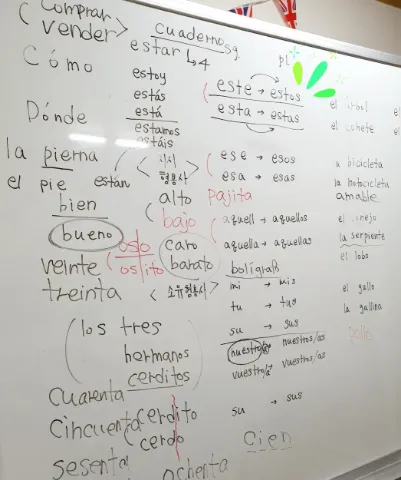 Comprar
vender
cuadernos
estar
4
Cómo
estoy
estás
está
estamos
estáis
están
Dónde
la pierna
el pie
bien
bueno
veinte
treinta
los tres
hermanos
cerditos
cuarenta
cincuenta
cerdito
cerdo
sesenta
ochenta
oso
osito
지시
형용사
alto
bajo
pajita
caro
barato
소유형용사
bolígrafo
pl
este → estos
esta → estas
ese → esos
esa → esas
aquell → aquellos
aquella → aquellas
mi → mis
tu → tus
su → sus
nuestro/a nuestros/as
vuestro/a vuestros/as
su → sus
cien
el árbol
el cohete
a bicicleta
la motocicleta
amable
el conejo
la serpiente
el lobo
el gallo
la gallina
pollo